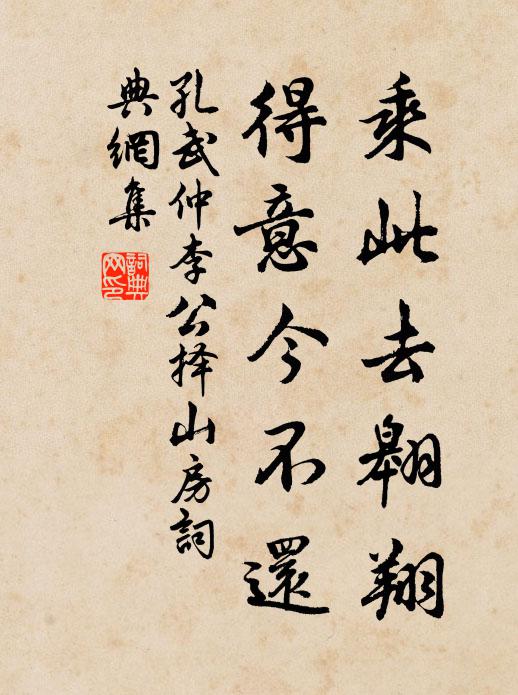 乘此去翱翔
得意今不還
孔武仲李公择山房詞
典網集
詞典網印